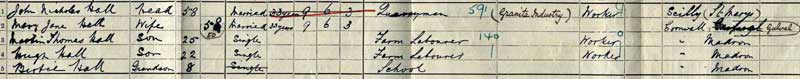 1 John Nicholas Hall head 58 Married 33 years 9 6 3 Quarryman 591 (Granite Industry) Worker Scilly (St Marys)
2 Mary Jane Hall Wife 58 Married 33 years 9 6 3 Cornwall Gulval
3 Martin Thomas Hall Son 25 Single Farm Labourer 140 Worker " Madron
4 Hugh Hall Son 22 Single Farm Labourer Worker " Madron
5 Bertie Hall Grandson 8 Single School " Madron